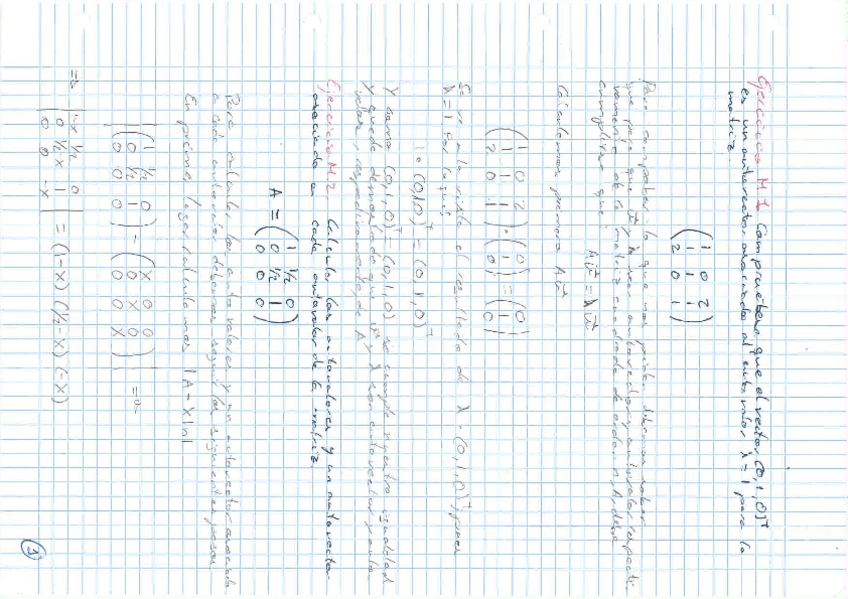 Ejercicio M.1 Compruébese que el vector (0,1,0)ᵀ
es un autovector asociado al autovalor λ = 1 para la
matriz.
( 1 0 2
1 1 1
2 0 1 )
Para comprobar lo que nos piden debemos saber
que para que u⃗ y λ sean autovector y autovalor respecti-
vamente de la matriz cuadrada de orden n, A, debe
cumplirse que:
A u⃗ = λ u⃗
Calculemos primero A u⃗
( 1 0 2
1 1 1
2 0 1 ) · ( 0
1
0 ) = ( 0
1
0 )
Se ve a la vista el resultado de λ · (0,1,0)ᵀ, pues
λ = 1 por lo que;
1 · (0,1,0)ᵀ = (0,1,0)ᵀ
Y como (0,1,0)ᵀ = (0,1,0)ᵀ se cumple nuestra igualdad
y queda demostrado que u⃗ y λ son autovector y auto-
valor, respectivamente, de A.
Ejercicio M.2 Calcular los autovalores y un autovector
asociado a cada autovalor de la matriz.
A = ( 1 1/2 0
0 1/2 1
0 0 0 )
Para calcular los autovalores y un autovector asociado
a cada autovalor debemos seguir los siguientes pasos.
En primer lugar calculamos |A - X In|
| ( 1 1/2 0
0 1/2 1
0 0 0 ) - ( X 0 0
0 X 0
0 0 X ) | =>
=> | 1-X 1/2 0
0 1/2-X 1
0 0 -X | = (1-X) (1/2-X) (-X)
①